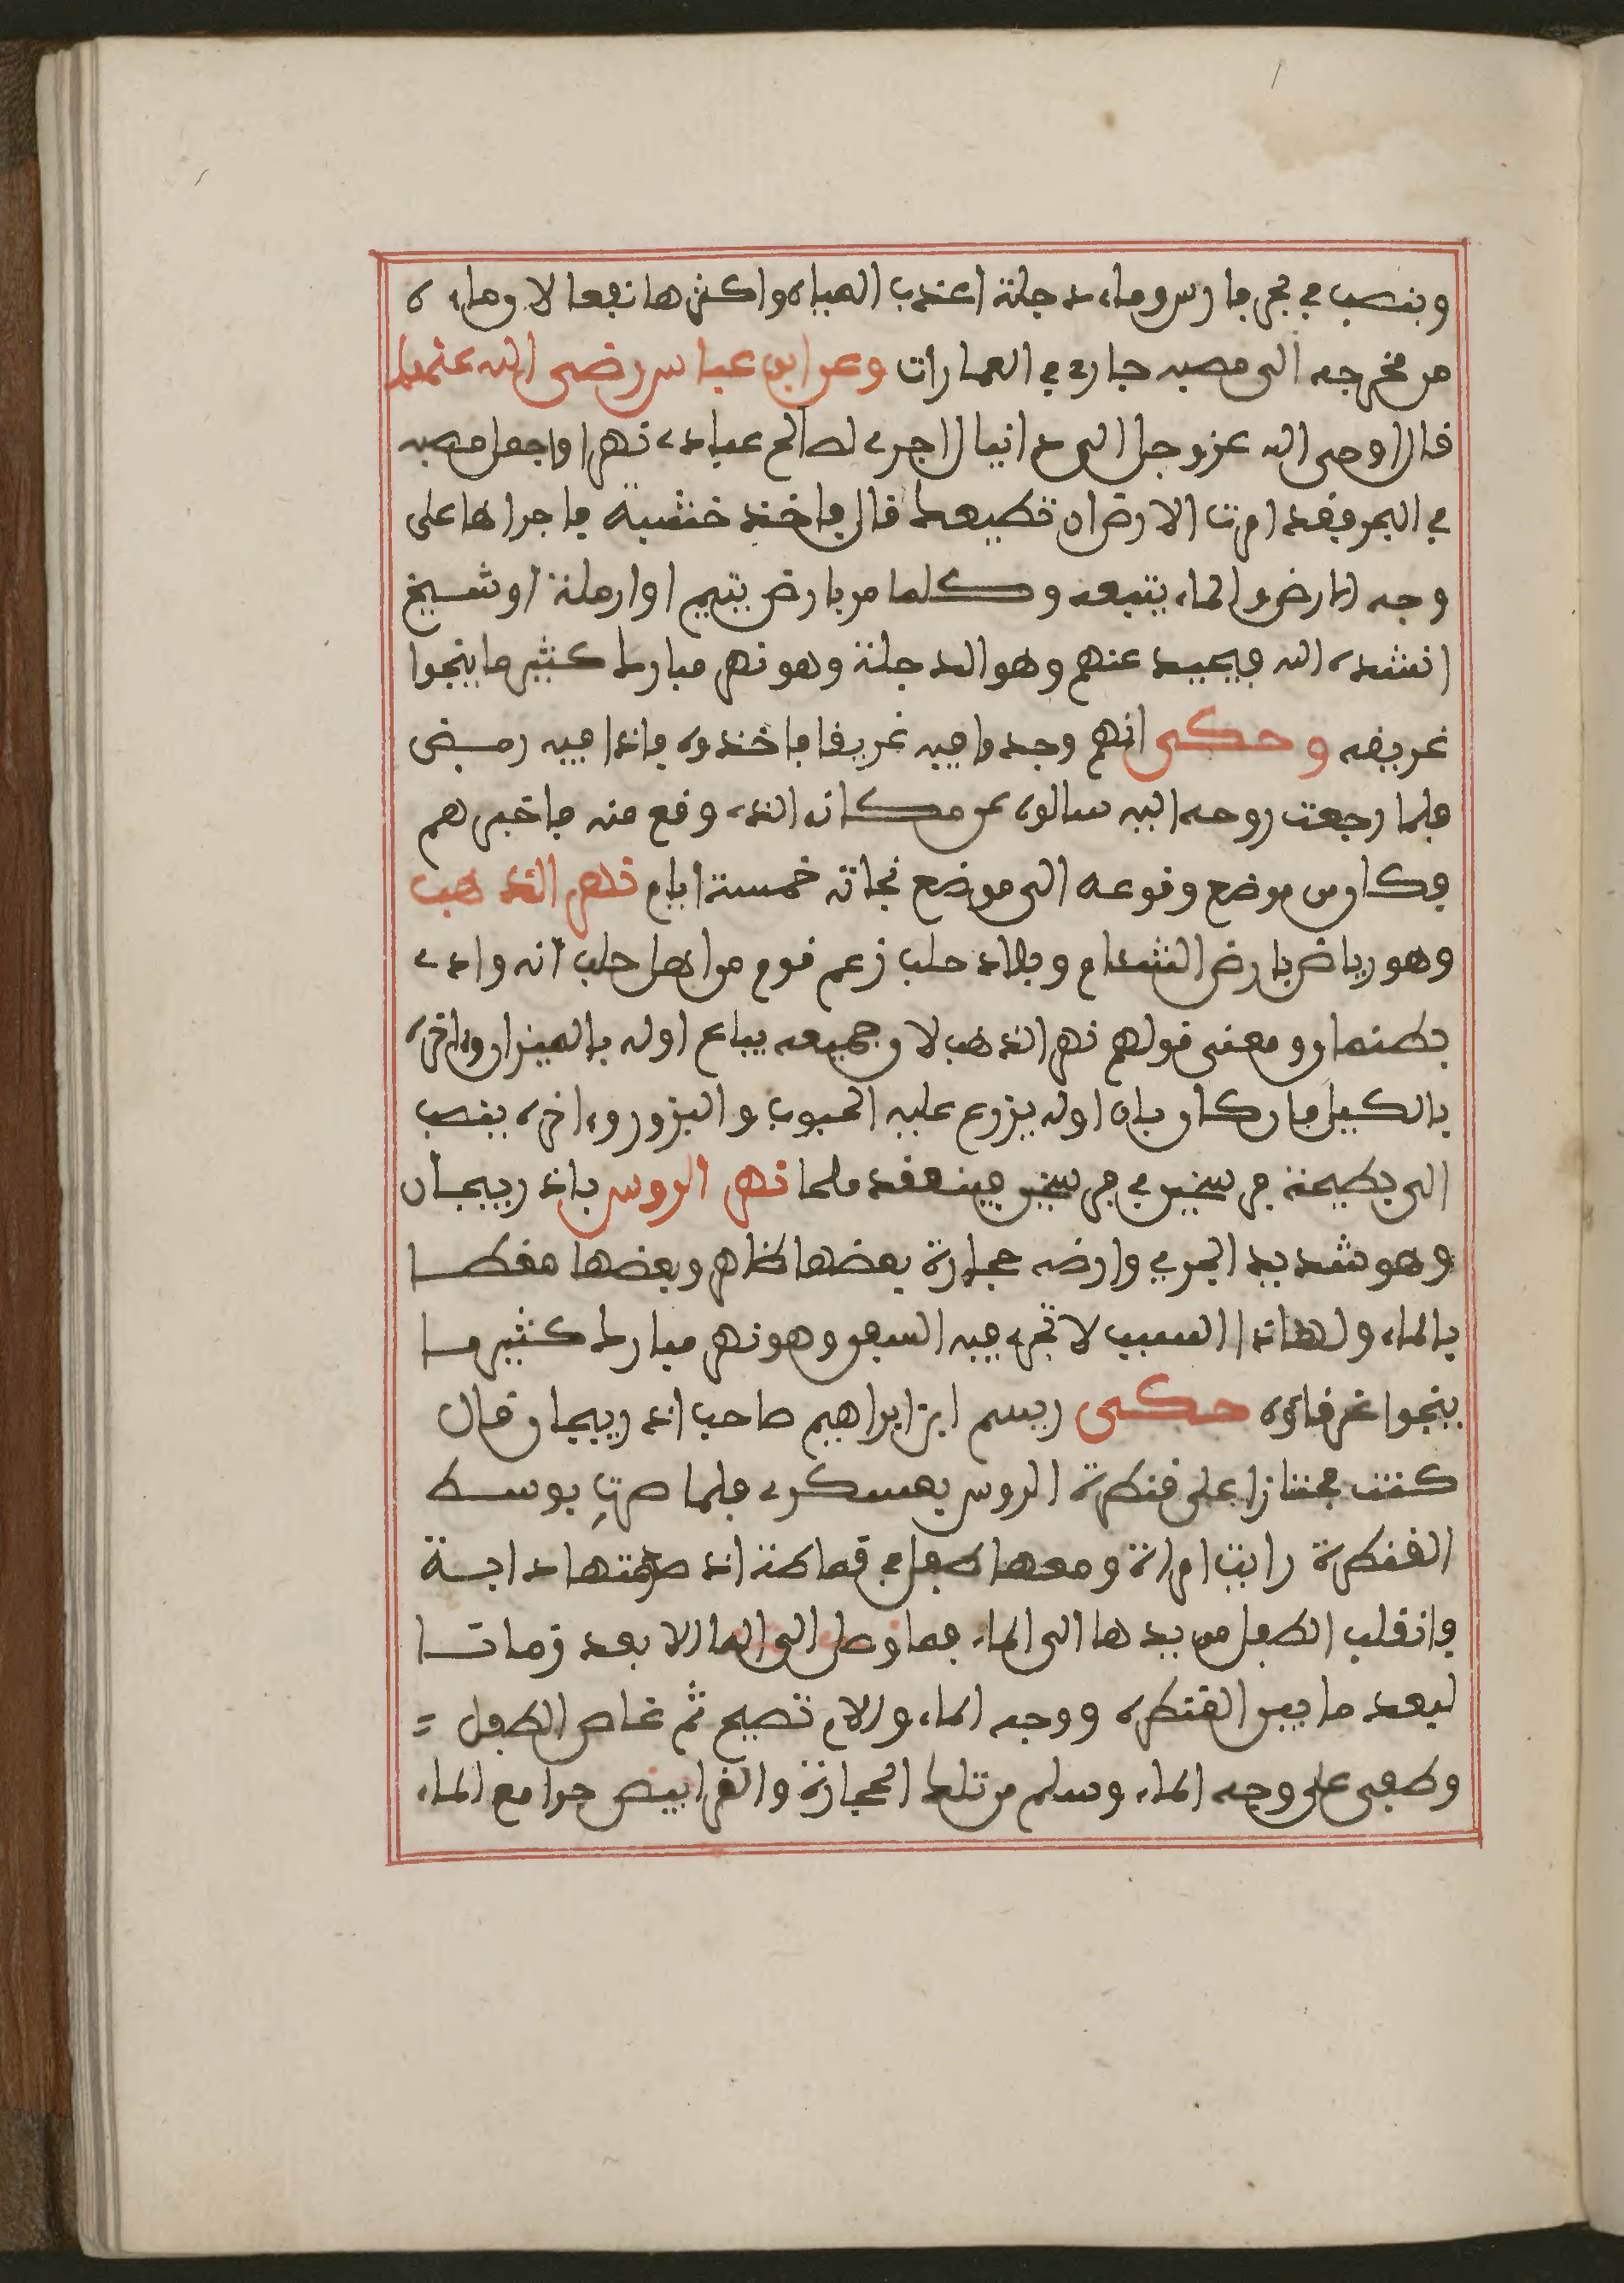 وينصب في بحر فارس وماء دجلة اعذب المياه واكثرها نفعا لان ماءه
من مخرجه الى مصبه جارى في العمارات وعن ابن عباس رضى الله عنهما
قال اوحى الله عز وجل الى دانيال اجرى لصالح عبادى نهرا واجعل مصبه
في البحر فقد امرت الارض ان تطيعك قال فاخذ خشبة فاجراها على
وجه الارض والماء يتبعه وكلما مر بارض يتيم او ارملة او شيخ
انشده الله فيحيد عنهم وهو الدجلة وهو نهر مبارك كثير ما ينجوا
غريقه وحكى انهم وجدوا فيه غريقا فاخذوه فاذا فيه رمق
فلما رجعت روحه اليه سالوه عن مكانه الذى وقع منه فاخبرهم
فكان من موضع وقوعه الى موضع نجاته خمسة ايام نهر الذهب
وهو رياض بارض الشام وبلاد حلب زعم قوم من اهل حلب انه وادى
بطنان ومعنى قولهم نهر الذهب لان جميعه يباع اوله بالميزان واخره
بالكيل فان كان بان اوله يزرع عليه الحبوب والبزور واخره ينصب
الى بطيحة فرسخين في فرسخين فينعقد ملحا نهر الروس باذربيجان
وهو شديد الجري وارضه حجارة بعضها ظاهر وبعضها مغطا
بالماء ولهاذا السبب لا تجرى فيه السفن وهو نهر مبارك كثير ما
ينجوا غرقاؤه حكى ريسم ابن ابراهيم صاحب اذربيجان قال
كنت مجتازا على قنطرة الروس بعسكرى فلما صرت بوسط
القنطرة رايت امراة ومعها طفل في قماطة اذ صدمتها دابة
وانقلب الطفل من يدها الى الماء فما وصل الى الما الا بعد زمانا
لبعد ما بين القنطره ووجه الماء والام تصيح ثم غاص الطفل =
وطفى على وجه الماء وسلم من تلك الحجارة والقرابيص جرا مع الماء